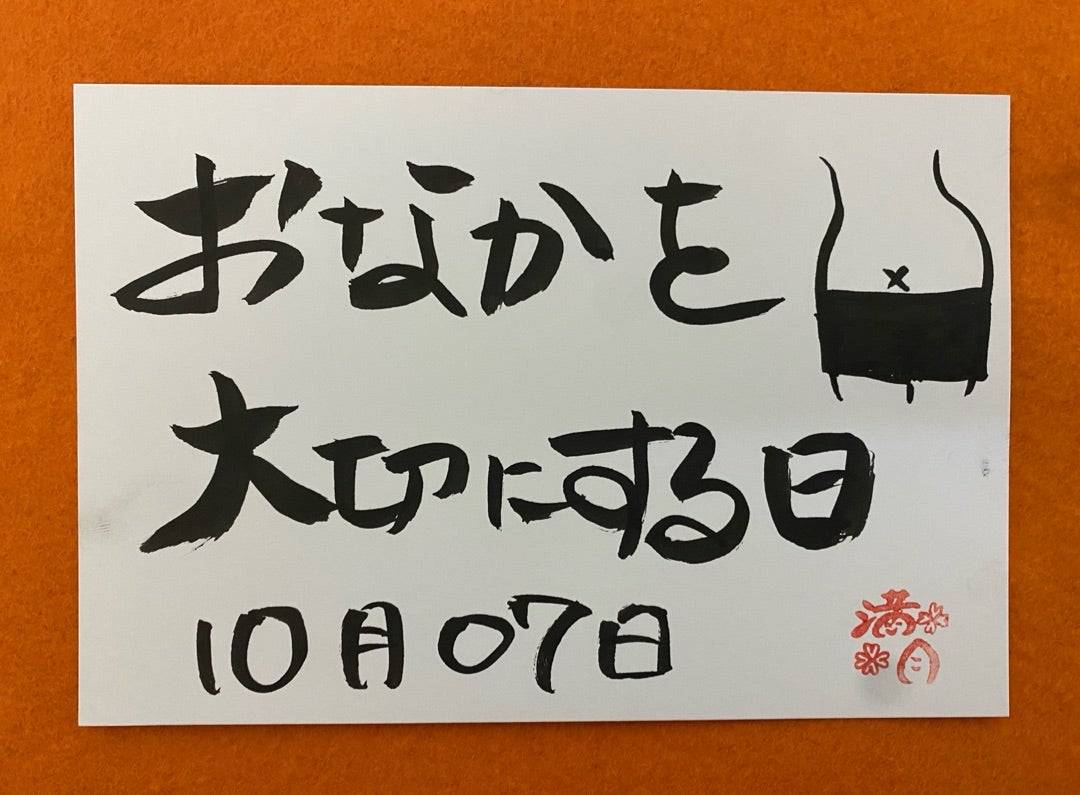 おなかを
大切にする日
10月07日
満月